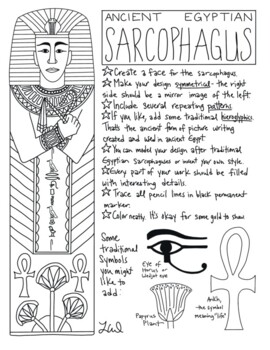 ANCIENT EGYPTIAN
SARCOPHAGUS
☆Create a face for the sarcophagus.
☆Make your design symmetrical - the right
side should be a mirror image of the left
☆Include several repeating patterns.
☆If you like, add some traditional hieroglyphics.
That's the ancient form of picture writing
created and used in ancient Egypt.
☆You can model your design after traditional
Egyptian Sarcophaguses or invent your own style.
☆Every part of your work should be filled
with interesting details.
☆Trace all pencil lines in black permanent
marker.
☆Color neatly. It's okay for some gold to show
Some
traditional
Symbols
you might
like to
add:
Eye of
Horus or
Wedjat eye
Papyrus
Plant
Ankh,
the symbol
meaning "life"